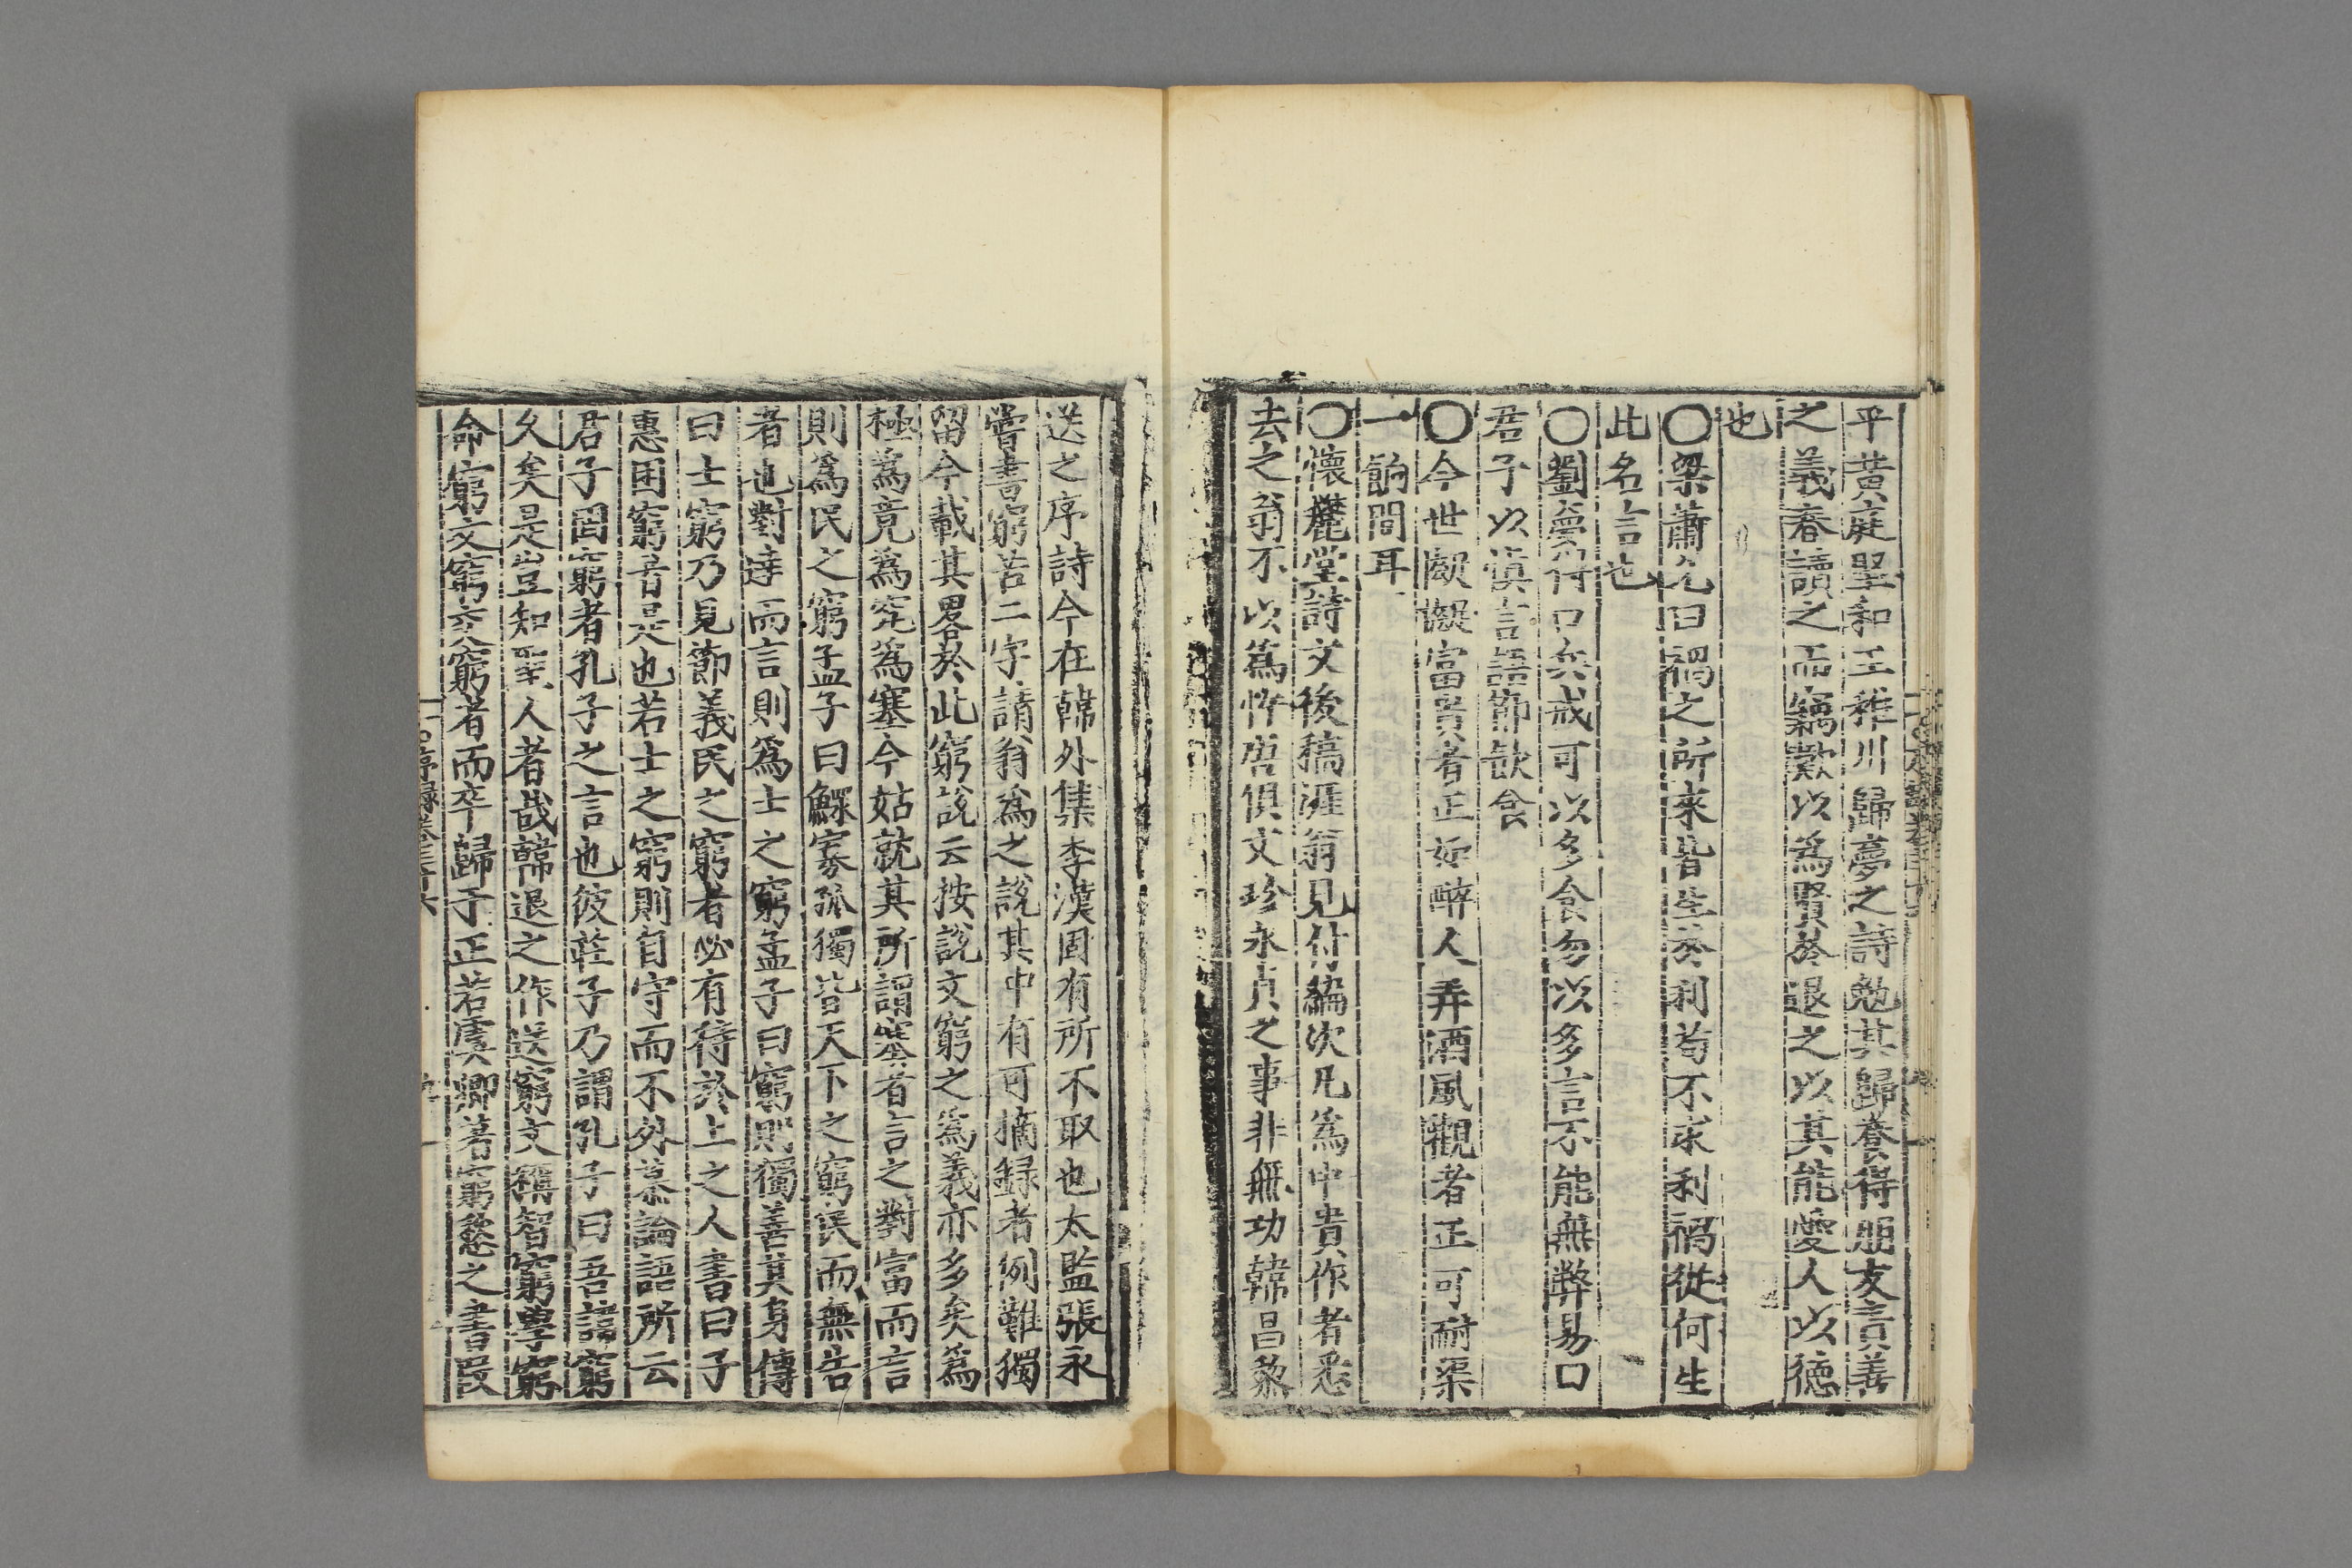 平黃庭堅和王稚川歸夢之詩勉其歸養得朋友言善
之義春讀之而竊歎以為賢於退之以其能愛人以德
也
〇梁蕭允曰禍之所來皆生於利苟不求利禍從何生
此名言也
〇劉夢得口兵戒可以多食勿以多言不能無弊易口
君子以慎言語節飲食
〇今世凝富貴者正如醉人弄酒風觀者正可耐渠
一餉間耳
〇懷麓堂詩文後稿涯翁見付編次凡為中貴作者悉
去之翁不以為忤唐俱文珍永貞之事非無功韓昌黎
送之序詩今在韓外集李漢固有所不取也太監張永
嘗書窮苦二字請翁為之說其中有可摘録者例難獨
留今載其畧於此窮說云按說文窮之為義亦多矣為
極為竟為究為塞今姑就其所謂塞者言之對富而言
則為民之窮孟子曰鰥寡孤獨皆天下之窮民而無告
者也對達而言則為士之窮孟子曰窮則獨善其身傳
曰士窮乃見節義民之窮者必有待於上之人書曰子
惠困窮者是也若士之窮則自守而不外慕論語所云
君子固窮者孔子之言也彼莊子乃謂孔子曰吾諱窮
久矣是豈知聖人者哉韓退之作送窮文稱智窮學窮
命窮文窮交窮者而卒歸于正若虞卿著窮愁之書段